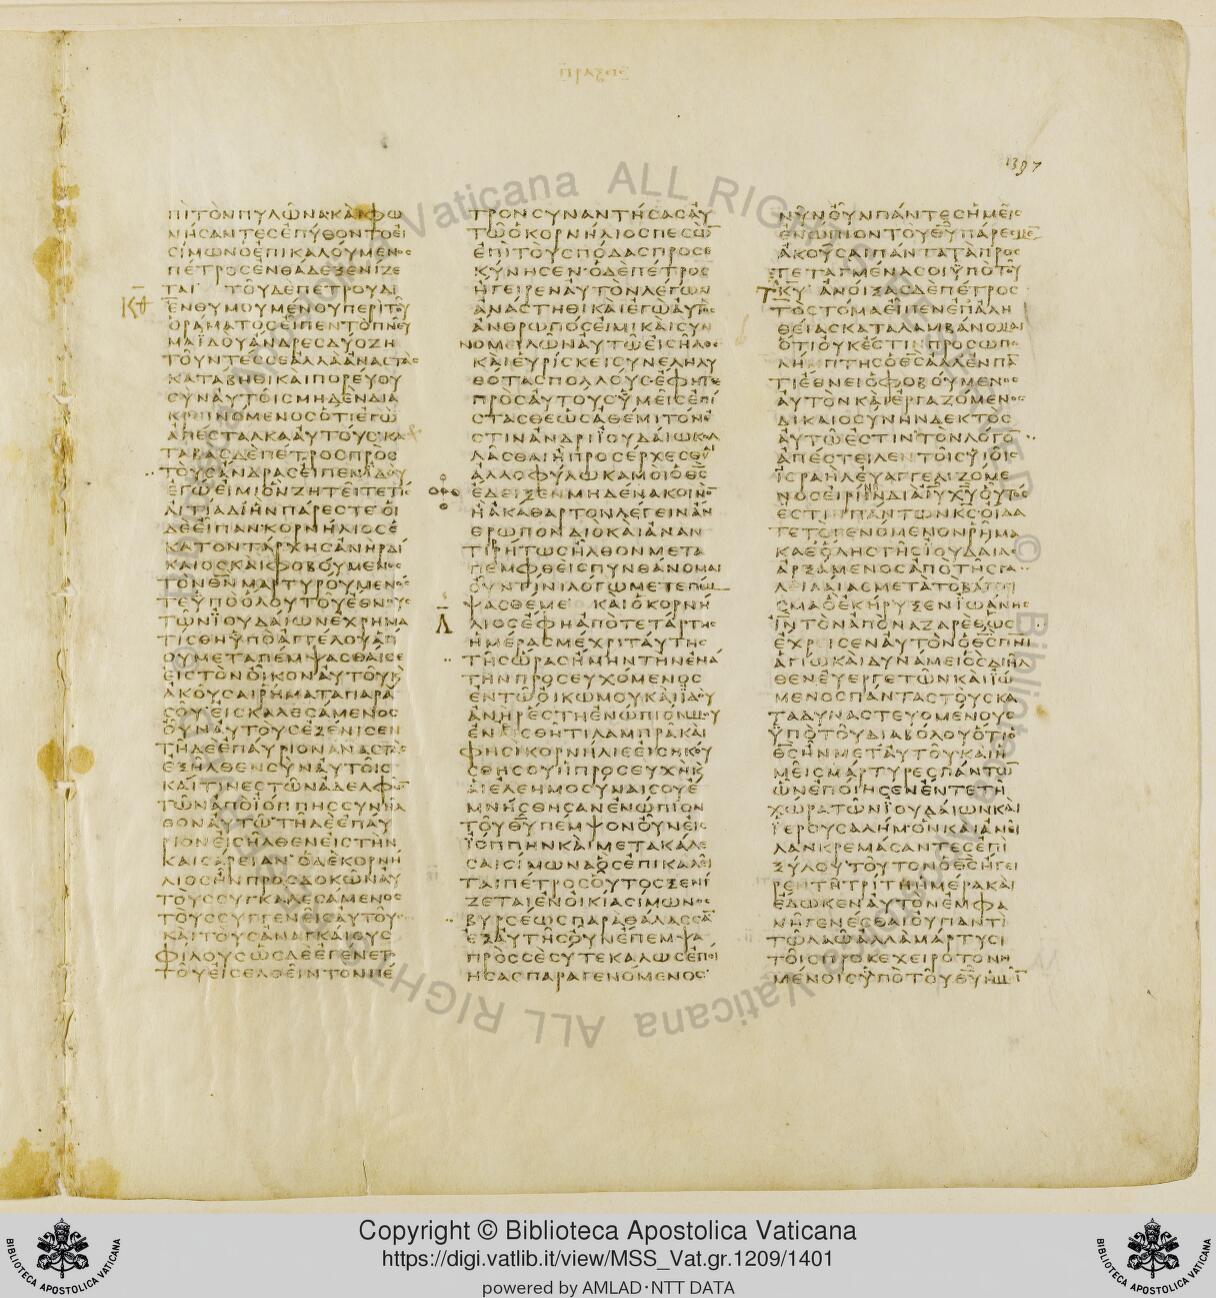 1397
ΠΙΤΟΝΠΥΛΩΝΑΚΑΙΦΩ
ΝΗCΑΝΤΕCΕΠΥΘΟΝΤΟΕΙ
CΙΜΩΝΟΕΠΙΚΑΛΟΥΜΕΝΟC
ΠΕΤΡΟCΕΝΘΑΔΕΞΕΝΙΖΕ
ΤΑΙ ΤΟΥΔΕΠΕΤΡΟΥΔΙ
ΕΝΘΥΜΟΥΜΕΝΟΥΠΕΡΙΤΟΥ
ΟΡΑΜΑΤΟCΕΙΠΕΝΤΟΠΝΕΥ
ΜΑΪΔΟΥΑΝΔΡΕCΔΥΟΖΗ
ΤΟΥΝΤΕCCΕΑΛΛΑΑΝΑCΤΑC
ΚΑΤΑΒΗΘΙΚΑΙΠΟΡΕΥΟΥ
CΥΝΑΥΤΟΙCΜΗΔΕΝΔΙΑ
ΚΡΙΝΟΜΕΝΟCΟΤΙΕΓΩ
ΑΠΕCΤΑΛΚΑΑΥΤΟΥCΚΑ
ΤΑΒΑCΔΕΠΕΤΡΟCΠΡΟC
ΤΟΥCΑΝΔΡΑCΕΙΠΕΝΙΔΟΥ
ΕΓΩΕΙΜΙΟΝΖΗΤΕΙΤΕΤΙC
ΑΙΤΙΑΔΙΗΝΠΑΡΕCΤΕΟΙ
ΔΕΕΙΠΑΝΚΟΡΝΗΛΙΟCΕ
ΚΑΤΟΝΤΑΡΧΗCΑΝΗΡΔΙ
ΚΑΙΟCΚΑΙΦΟΒΟΥΜΕΝΟC
ΤΟΝΘΝΜΑΡΤΥΡΟΥΜΕΝΟC
ΤΕΫΠΟΟΛΟΥΤΟΥΕΘΝΟΥC
ΤΩΝΪΟΥΔΑΙΩΝΕΧΡΗΜΑ
ΤΙCΘΗΫΠΟΑΓΓΕΛΟΥΑΓΙ
ΟΥΜΕΤΑΠΕΜΨΑCΘΑΙCΕ
ΕΙCΤΟΝΟΙΚΟΝΑΥΤΟΥΚ
ΑΚΟΥCΑΙΡΗΜΑΤΑΠΑΡΑ
CΟΥΕΙCΚΑΛΕCΑΜΕΝΟC
ΟΥΝΑΥΤΟΥCΕΞΕΝΙCΕΝ
ΤΗΔΕΕΠΑΥΡΙΟΝΑΝΑCΤΑC
ΕΞΗΛΘΕΝCΥΝΑΥΤΟΙC
ΚΑΙΤΙΝΕCΤΩΝΑΔΕΛΦΩ
ΤΩΝΑΠΟΪΟΠΠΗCCΥΝΗΛ
ΘΟΝΑΥΤΩΤΗΔΕΕΠΑΥ
ΡΙΟΝΕΙCΗΛΘΕΝΕΙCΤΗΝ
ΚΑΙCΑΡΕΙΑΝΟΔΕΚΟΡΝΗ
ΛΙΟCΗΝΠΡΟCΔΟΚΩΝΑΥ
ΤΟΥCCΥΓΚΑΛΕCΑΜΕΝΟC
ΤΟΥCCΥΓΓΕΝΕΙCΑΥΤΟΥ
ΚΑΙΤΟΥCΑΝΑΓΚΑΙΟΥC
ΦΙΛΟΥCΩCΔΕΕΓΕΝΕΤ
ΤΟΥΕΙCΕΛΘΕΙΝΤΟΝΠΕ
ΤΡΟΝCΥΝΑΝΤΗCΑCΑΥ
ΤΩΟΚΟΡΝΗΛΙΟCΠΕCΩ
ΕΠΙΤΟΥCΠΟΔΑCΠΡΟCΕ
ΚΥΝΗCΕΝΟΔΕΠΕΤΡΟC
ΗΓΕΙΡΕΝΑΥΤΟΝΛΕΓΩΝ
ΑΝΑCΤΗΘΙΚΑΙΕΓΩΑΥΤΟC
ΑΝΘΡΩΠΟCΕΙΜΙΚΑΙCΥΝ
ΟΜΕΙΛΩΝΑΥΤΩΕΙCΗΛΘΕ
ΚΑΙΕΥΡΙCΚΕΙCΥΝΕΛΗΛΥ
ΘΟΤΑCΠΟΛΛΟΥCΕΦΗΤΕ
ΠΡΟCΑΥΤΟΥCΫΜΕΙCΕΠΙ
CΤΑCΘΕΩCΑΘΕΜΙΤΟΝΕ
CΤΙΝΑΝΔΡΙΪΟΥΔΑΙΩΚΟΛ
ΛΑCΘΑΙΗΠΡΟCΕΡΧΕCΘΑΙ
ΑΛΛΟΦΥΛΩΚΑΜΟΙΟΘC
ΕΔΕΙΞΕΝΜΗΔΕΝΑΚΟΙΝΟ
ΗΑΚΑΘΑΡΤΟΝΛΕΓΕΙΝΑΝ
ΘΡΩΠΟΝΔΙΟΚΑΙΑΝΑΝ
ΤΙΡΗΤΩCΗΛΘΟΝΜΕΤΑ
ΠΕΜΦΘΕΙCΠΥΝΘΑΝΟΜΑΙ
ΟΥΝΤΙΝΙΛΟΓΩΜΕΤΕΠΕΜ
ΨΑCΘΕΜΕ ΚΑΙΟΚΟΡΝΗ
ΛΙΟCΕΦΗΑΠΟΤΕΤΑΡΤΗC
ΗΜΕΡΑCΜΕΧΡΙΤΑΥΤΗC
ΤΗCΩΡΑCΗΜΗΝΤΗΝΕΝΑ
ΤΗΝΠΡΟCΕΥΧΟΜΕΝΟC
ΕΝΤΩΟΙΚΩΜΟΥΚΑΙΪΔΟΥ
ΑΝΗΡΕCΤΗΕΝΩΠΙΟΝΜΟΥ
ΕΝΕCΘΗΤΙΛΑΜΠΡΑΚΑΙ
ΦΗCΙΚΟΡΝΗΛΙΕΕΙCΗΚΟΥ
CΘΗCΟΥΗΠΡΟCΕΥΧΗΚ
ΑΙΕΛΕΗΜΟCΥΝΑΙCΟΥΕ
ΜΝΗCΘΗCΑΝΕΝΩΠΙΟΝ
ΤΟΥΘΥΠΕΜΨΟΝΟΥΝΕΙC
ΪΟΠΠΗΝΚΑΙΜΕΤΑΚΑΛΕ
CΑΙCΙΜΩΝΑΟCΕΠΙΚΑΛΕΙ
ΤΑΙΠΕΤΡΟCΟΥΤΟCΞΕΝΙ
ΖΕΤΑΙΕΝΟΙΚΙΑCΙΜΩΝΟC
ΒΥΡCΕΩCΠΑΡΑΘΑΛΑCCΑ
ΕΞΑΥΤΗCΟΥΝΕΠΕΜΨΑ
ΠΡΟCCΕCΥΤΕΚΑΛΩCΕΠΟΙ
ΗCΑCΠΑΡΑΓΕΝΟΜΕΝΟC
ΝΥΝΟΥΝΠΑΝΤΕCΗΜΕΙC
ΕΝΩΠΙΟΝΤΟΥΘΥΠΑΡΕCΜΕ
ΑΚΟΥCΑΙΠΑΝΤΑΤΑΠΡΟC
ΤΕΤΑΓΜΕΝΑCΟΙΫΠΟΤΟΥ
ΚΥ ΑΝΟΙΞΑCΔΕΠΕΤΡΟC
ΤΟCΤΟΜΑΕΙΠΕΝΕΠΑΛΗ
ΘΕΙΑCΚΑΤΑΛΑΜΒΑΝΟΜΑΙ
ΟΤΙΟΥΚΕCΤΙΝΠΡΟCΩΠΟ
ΛΗΜΠΤΗCΟΘCΑΛΛΕΝΠΑ
ΤΙΕΘΝΕΙΟΦΟΒΟΥΜΕΝΟC
ΑΥΤΟΝΚΑΙΕΡΓΑΖΟΜΕΝΟC
ΔΙΚΑΙΟCΥΝΗΝΔΕΚΤΟC
ΑΥΤΩΕCΤΙΝΤΟΝΛΟΓΟ
ΑΠΕCΤΕΙΛΕΝΤΟΙCΥΙΟΙC
ΙCΡΑΗΛΕΥΑΓΓΕΛΙΖΟΜΕ
ΝΟCΕΙΡΗΝΗΝΔΙΑΙΥΧΥΟΥΤΟC
ΕCΤΙΠΑΝΤΩΝΚCΟΙΔΑ
ΤΕΤΟΓΕΝΟΜΕΝΟΝΡΗΜΑ
ΚΑΘΟΛΗCΤΗCΪΟΥΔΑΙΑC
ΑΡΞΑΜΕΝΟCΑΠΟΤΗCΓΑ
ΛΕΙΛΑΙΑCΜΕΤΑΤΟΒΑΠΤΙ
CΜΑΟΕΚΗΡΥΞΕΝΪΩΑΝΗC
ΙΝΤΟΝΑΠΟΝΑΖΑΡΕΘΩC
ΕΧΡΙCΕΝΑΥΤΟΝΟΘCΠΝΙ
ΑΓΙΩΚΑΙΔΥΝΑΜΕΙΟCΔΙΗΛ
ΘΕΝΕΥΕΡΓΕΤΩΝΚΑΙΪΩ
ΜΕΝΟCΠΑΝΤΑCΤΟΥCΚΑ
ΤΑΔΥΝΑCΤΕΥΟΜΕΝΟΥC
ΫΠΟΤΟΥΔΙΑΒΟΛΟΥΟΤΙΟ
ΘCΗΝΜΕΤΑΥΤΟΥΚΑΙΗ
ΜΕΙCΜΑΡΤΥΡΕCΠΑΝΤΩ
ΩΝΕΠΟΙΗCΕΝΕΝΤΕΤΗ
ΧΩΡΑΤΩΝΪΟΥΔΑΙΩΝΚΑΙ
ΪΕΡΟΥCΑΛΗΜΟΝΚΑΙΑΝΕΙ
ΛΑΝΚΡΕΜΑCΑΝΤΕCΕΠΙ
ΞΥΛΟΥΤΟΥΤΟΝΟΘCΗΓΕΙ
ΡΕΝΤΗΤΡΙΤΗΗΜΕΡΑΚΑΙ
ΕΔΩΚΕΝΑΥΤΟΝΕΜΦΑ
ΝΗΓΕΝΕCΘΑΙΟΥΠΑΝΤΙ
ΤΩΛΑΩΑΛΛΑΜΑΡΤΥCΙ
ΤΟΙCΠΡΟΚΕΧΕΙΡΟΤΟΝΗ
ΜΕΝΟΙCΫΠΟΤΟΥΘΥΗΜΙ
Copyright © Biblioteca Apostolica Vaticana
https://digi.vatlib.it/view/MSS_Vat.gr.1209/1401
powered by AMLAD·NTT DATA